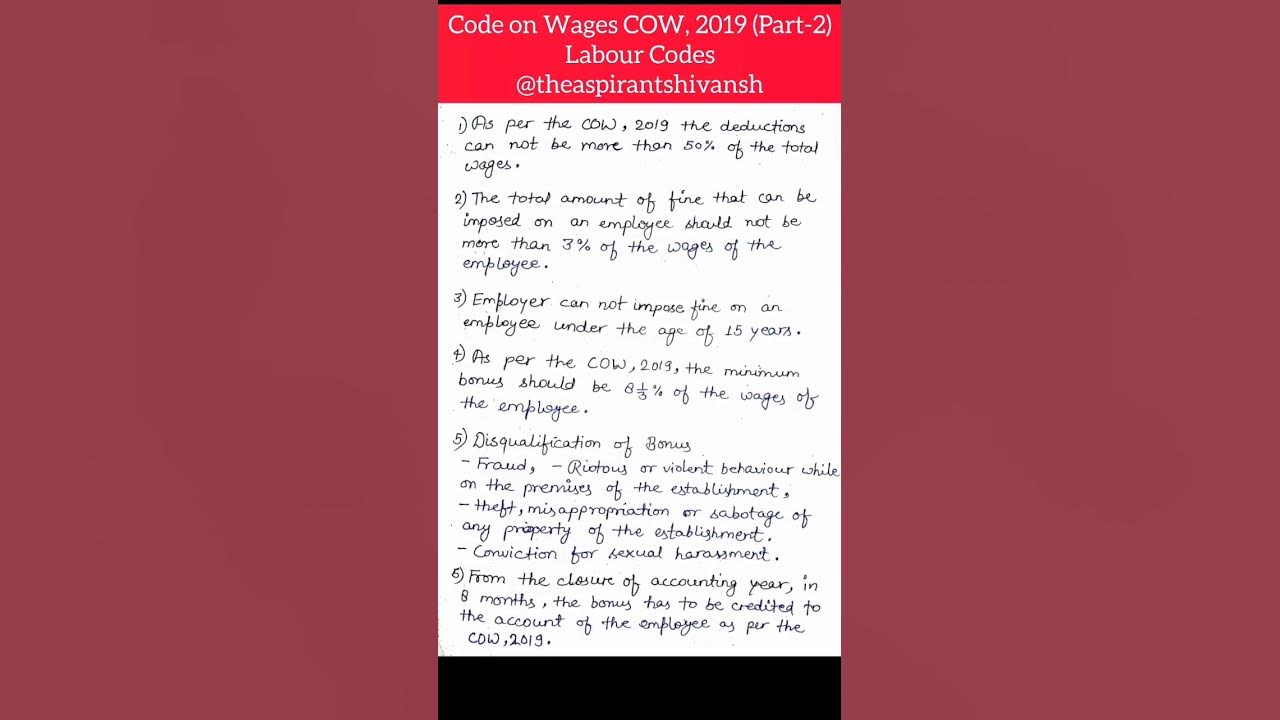 Code on Wages COW, 2019 (Part-2)
Labour Codes
@theaspirantshivansh
1) As per the COW, 2019 the deductions
can not be more than 50% of the total
wages.
2) The total amount of fine that can be
imposed on an employee should not be
more than 3% of the wages of the
employee.
3) Employer can not impose fine on an
employee under the age of 15 years.
4) As per the COW, 2019, the minimum
bonus should be 8 1/3 % of the wages of
the employee.
5) Disqualification of Bonus
- Fraud, - Riotous or violent behaviour while
on the premises of the establishment,
- theft, misappropriation or sabotage of
any property of the establishment.
- Conviction for sexual harassment.
6) From the closure of accounting year, in
8 months, the bonus has to be credited to
the account of the employee as per the
COW, 2019.